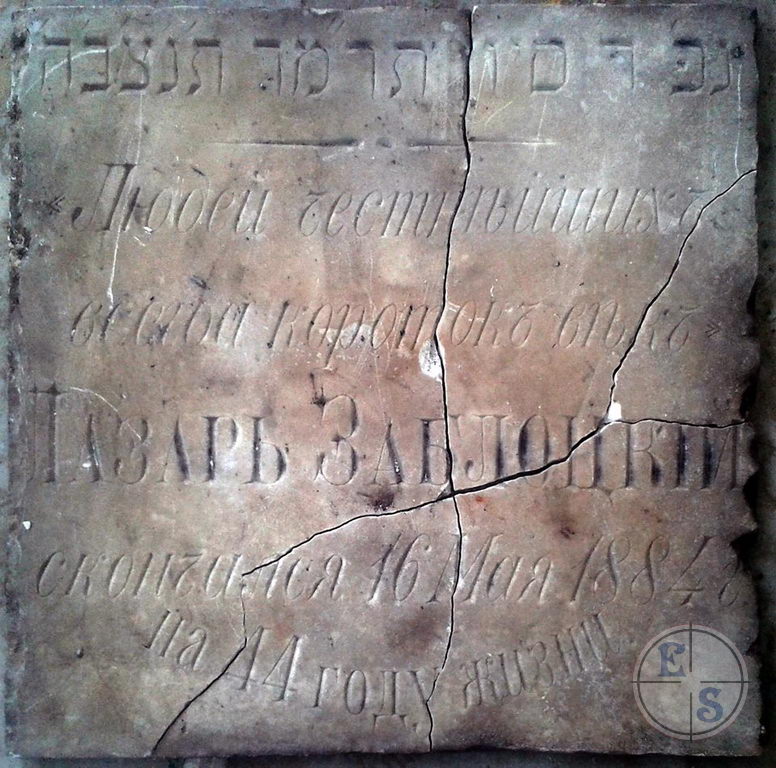 נפ ד סיון תרמד תנצבה
«Людей честнѣйшихъ
всегда коротокъ вѣкъ»
Лазарь Заблоцкій
скончался 16 Мая 1884 г
на 44 году жизни.
E S